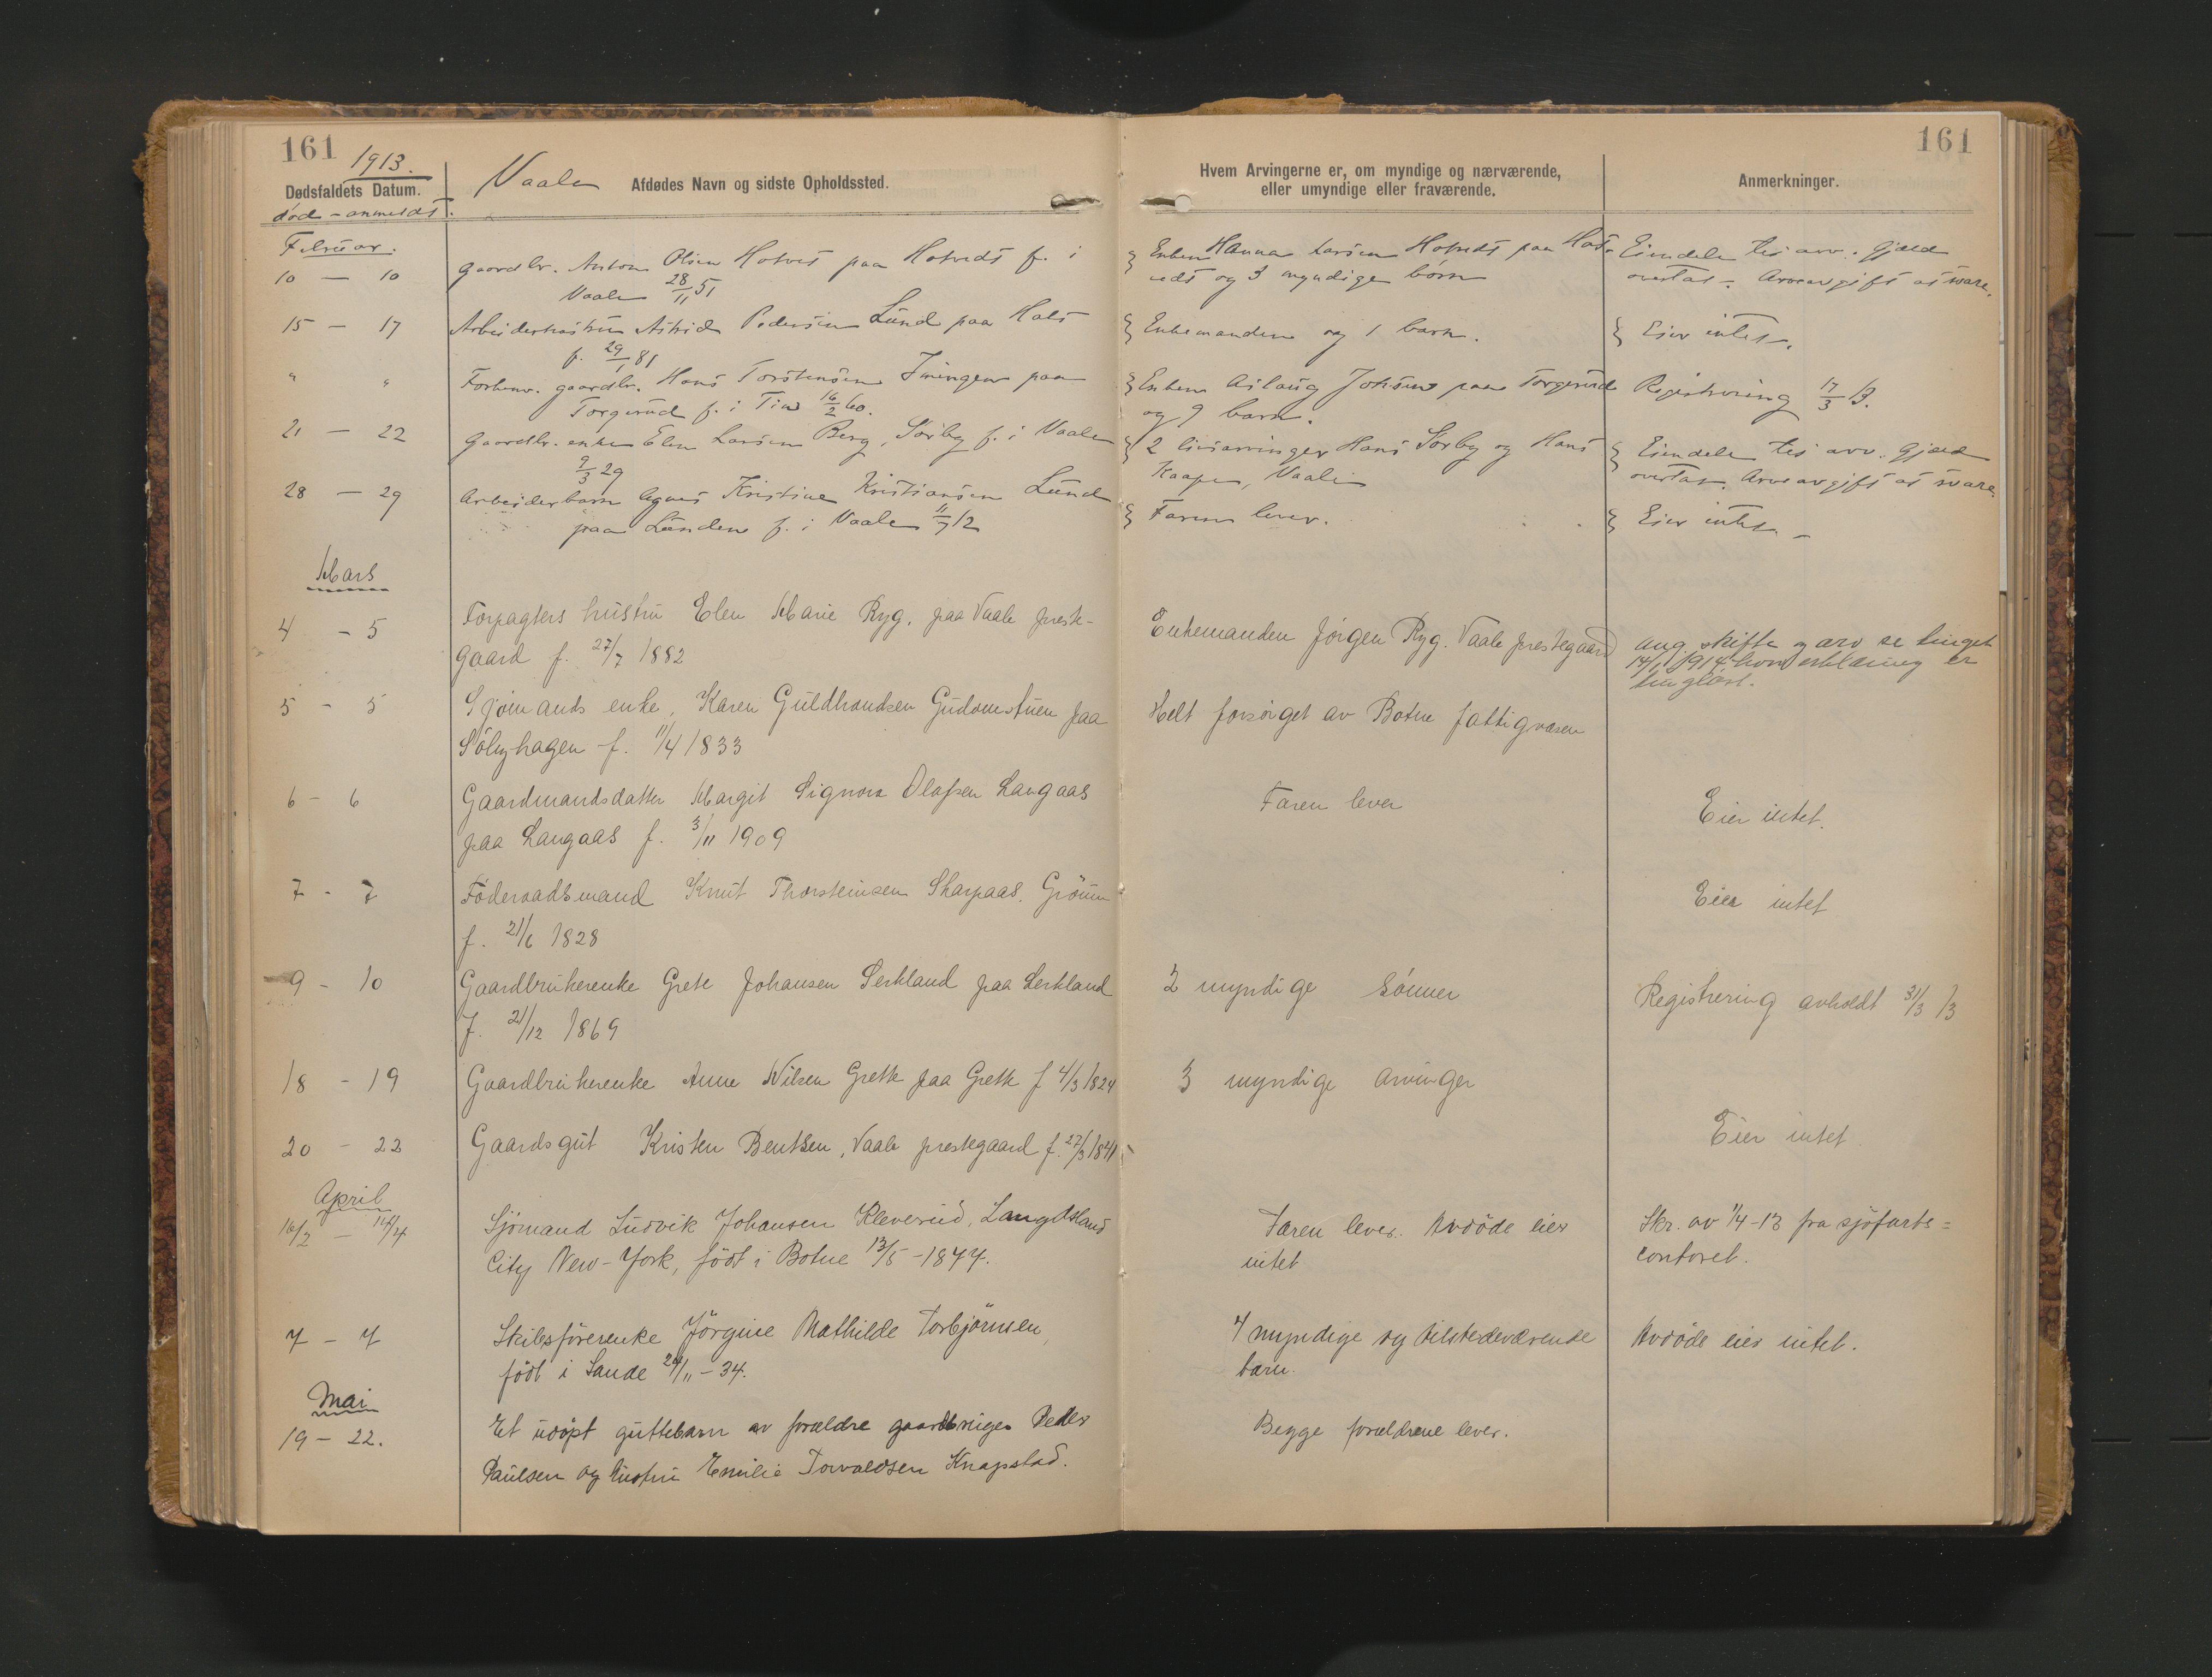 161
161
1913.
Vaale
Dødsfaldets Datum.
Afdødes Navn og sidste Opholdssted.
Hvem Arvingerne er, om myndige og nærværende,
eller umyndige eller fraværende.
Anmerkninger.
död - anmeldt.
Februar.
10 — 10
Gaardbr. Anton Olsen Hotvet paa Hotvedt f. i
Vaale 28/11 51
Enken Hanna Larsen Hotvedt paa Hot-
vedt og 3 myndige börn
Eiendele til arv. Gjæld
overtat. Arveavgift at svare.
15 — 17
Arbeiderhustru Astrid Pedersen Lund paa Hals
f. 29/1 81
Enkemanden og 1 barn.
Eier intet.
" "
Forhenv. gaardbr. Hans Torstensen paa
Torgerud f. i Tin 16/2 60.
Enken Aslaug Johsen paa Torgerud
og 9 barn.
Registrering 17/3 13.
21 — 22
Gaardbr. enke Elen Larsen Berg, Sörby f. i Vaale
9/3 29
2 livsarvinger Hans Sörby og Hans
Kaape, Vaale
Eiendele til arv. Gjæld
overtat. Arveavgift at svare.
28 — 29
Arbeiderbarn Agnes Kristine Kristiansen Lund
paa Lunden f. i Vaale 11/7 12
Faren lever.
Eier intet.
Mars
4 — 5
Forpagters hustru Elen Marie Ryg. paa Vaale preste-
gaard f. 27/7 1882
Enkemanden Jörgen Ryg. Vaale prestegaard
ang. skifte og arv se tinget
14/1 1914 hvor erklæring er
tinglæst.
5 - 5
Sjömands enke, Karen Guldbrandsen Gudomstuen paa
Sölyhagen f. 11/4 1833
Helt forsörget av Botne fattigvæsen
6 - 6
Gaardmandsdatter Margit Signora Olafsen Langaas
paa Langaas f. 3/11 1909
Faren lever
Eier intet.
7 - 7
Föderaadsmand Knut Thorsteinsen Skarpaas. Grönn
f. 21/6 1828
Eier intet
9 - 10
Gaardbrukerenke Grete Johansen Serkland paa Serkland
f. 21/12 1869
2 myndige sönner
Registrering avholdt 31/3 13
18 - 19
Gaardbrukerenke Anne Nilsen Grette paa Grette f 4/3 1824
3 myndige arvinger
20 - 22
Gaardsgut Kristen Bentsen, Vaale prestegaard f. 27/3 1841
Eier intet.
April
16/2 — 14/4
Sjömand Ludvik Johansen Kleverud, Lang Island
City New-York, födt i Botne 13/5 -1877.
Faren lever. Avdöde eier
intet
Skr. av 1/4-13 fra sjöfarts=
contoret.
7 - 7
Skibsförerenke Jörgine Mathilde Torbjörnsen,
födt i Sande 24/11 - 34.
4 myndige og tilstedeværende
barn.
Avdöde eier intet.
Mai
19 - 22.
Et udöpt guttebarn av forældre gaardbruger Peder
Paulsen og hustru Emilie Torvaldsen Knapstad.
Begge forældrene lever.